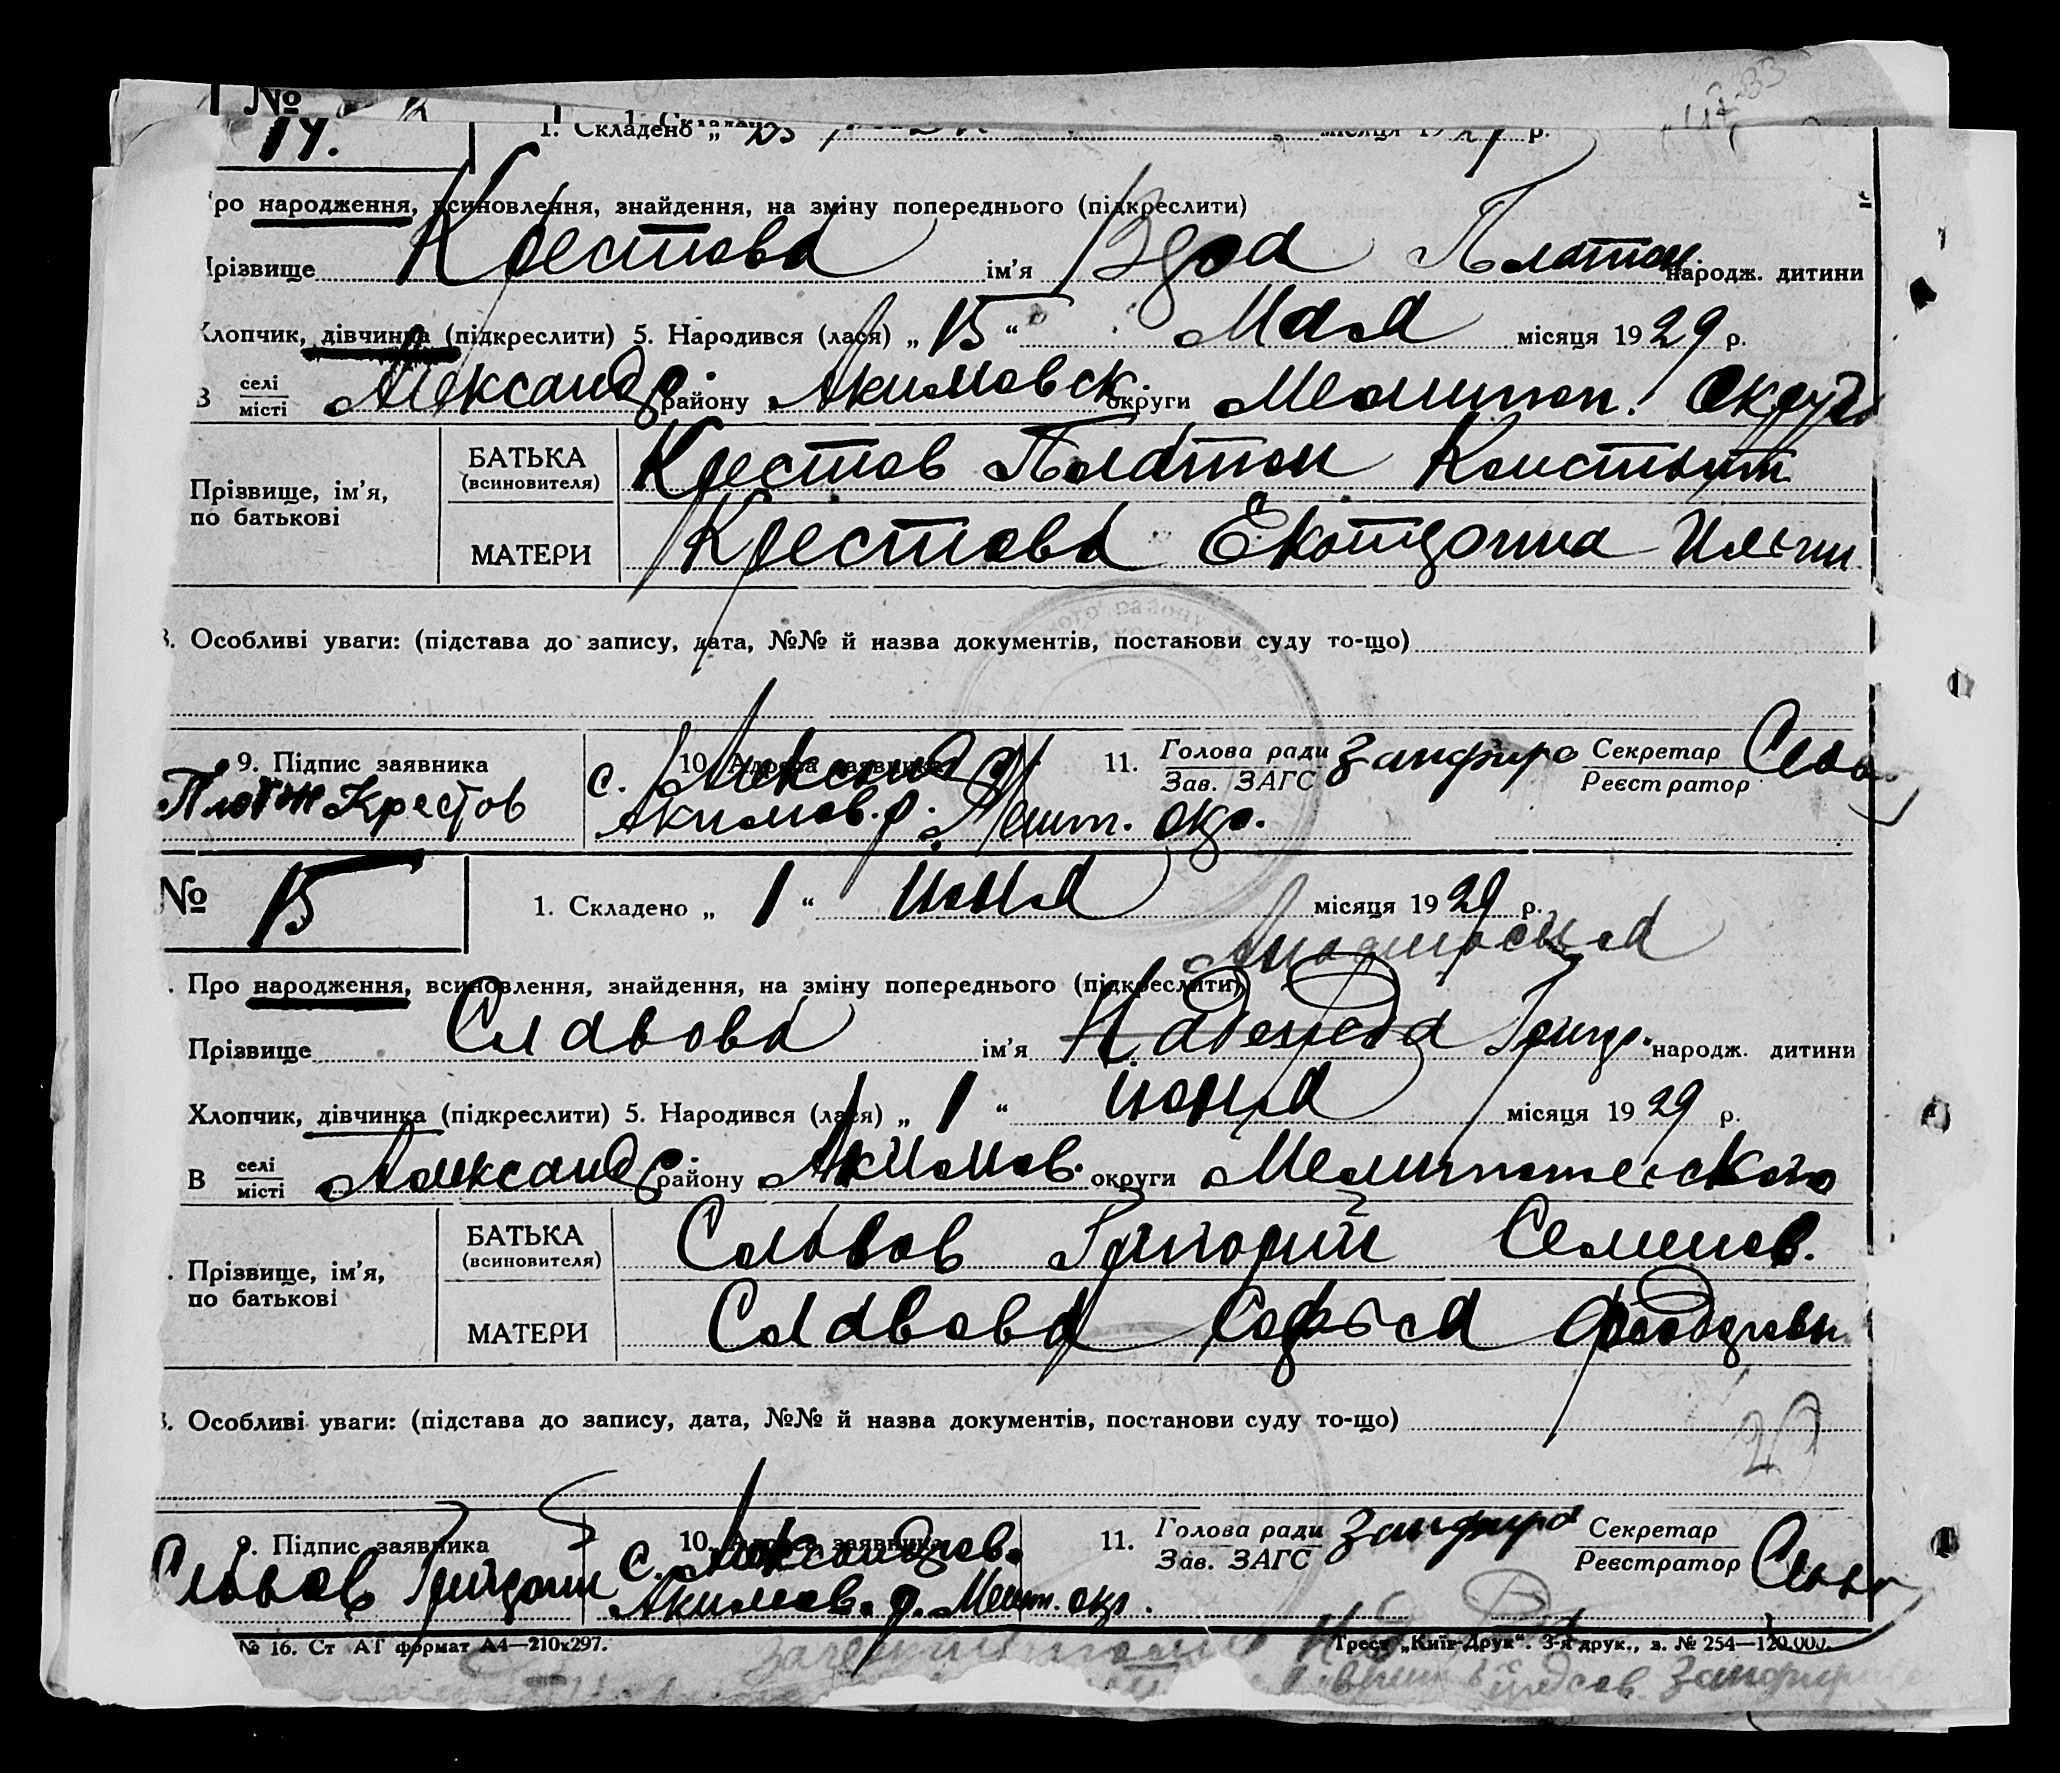 №
14.
1. Складено „ місяця 19 29 р.
про народження, всиновлення, знайдення, на зміну попереднього (підкреслити)
Прізвище Крестова ім'я Вера Платон. народж. дитини
Хлопчик, дівчинка (підкреслити) 5. Народився (лася) „ 15 “ Мая місяця 19 29 р.
В селі місті Александр. району Акимовск. округи Мелитоп. Округ
Прізвище, ім'я, по батькові
БАТЬКА (всиновителя) Крестов Платон Констант
МАТЕРИ Крестова Екатерина Ильин
8. Особливі уваги: (підстава до запису, дата, №№ й назва документів, постанови суду то-що)
9. Підпис заявника 10. Адреса заявника 11. Голова ради Зав. ЗАГС Секретар Реєстратор
Платон Крестов с. Александр Акимов. р. Мелит. окр.
№ 15 1. Складено „ 1 “ июня місяця 19 29 р.
Про народження, всиновлення, знайдення, на зміну попереднього (підкреслити)
Прізвище Славова ім'я Надежда Григор. народж. дитини
Хлопчик, дівчинка (підкреслити) 5. Народився (лася) „ 1 “ июня місяця 19 29 р.
В селі місті Александр. району Акимов. округи Мелитопольского
Прізвище, ім'я, по батькові
БАТЬКА (всиновителя) Славов Григорий Семенов.
МАТЕРИ Славова Софья Федоровн
8. Особливі уваги: (підстава до запису, дата, №№ й назва документів, постанови суду то-що)
9. Підпис заявника 10. Адреса заявника 11. Голова ради Зав. ЗАГС Секретар Реєстратор
Славов Григорий с. Александров. Акимов. р. Мелит. окр.
№ 16. Ст АТ формат А4—210х297. Трест „Київ-Друк“. 3-я друк., з. № 254—120.000.